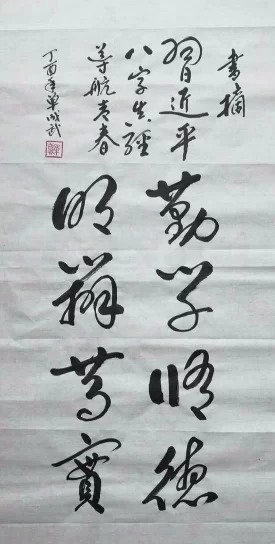 书摘
習近平
八字真經
导航青春
勤学修德
明辨笃實
丁酉年單成武